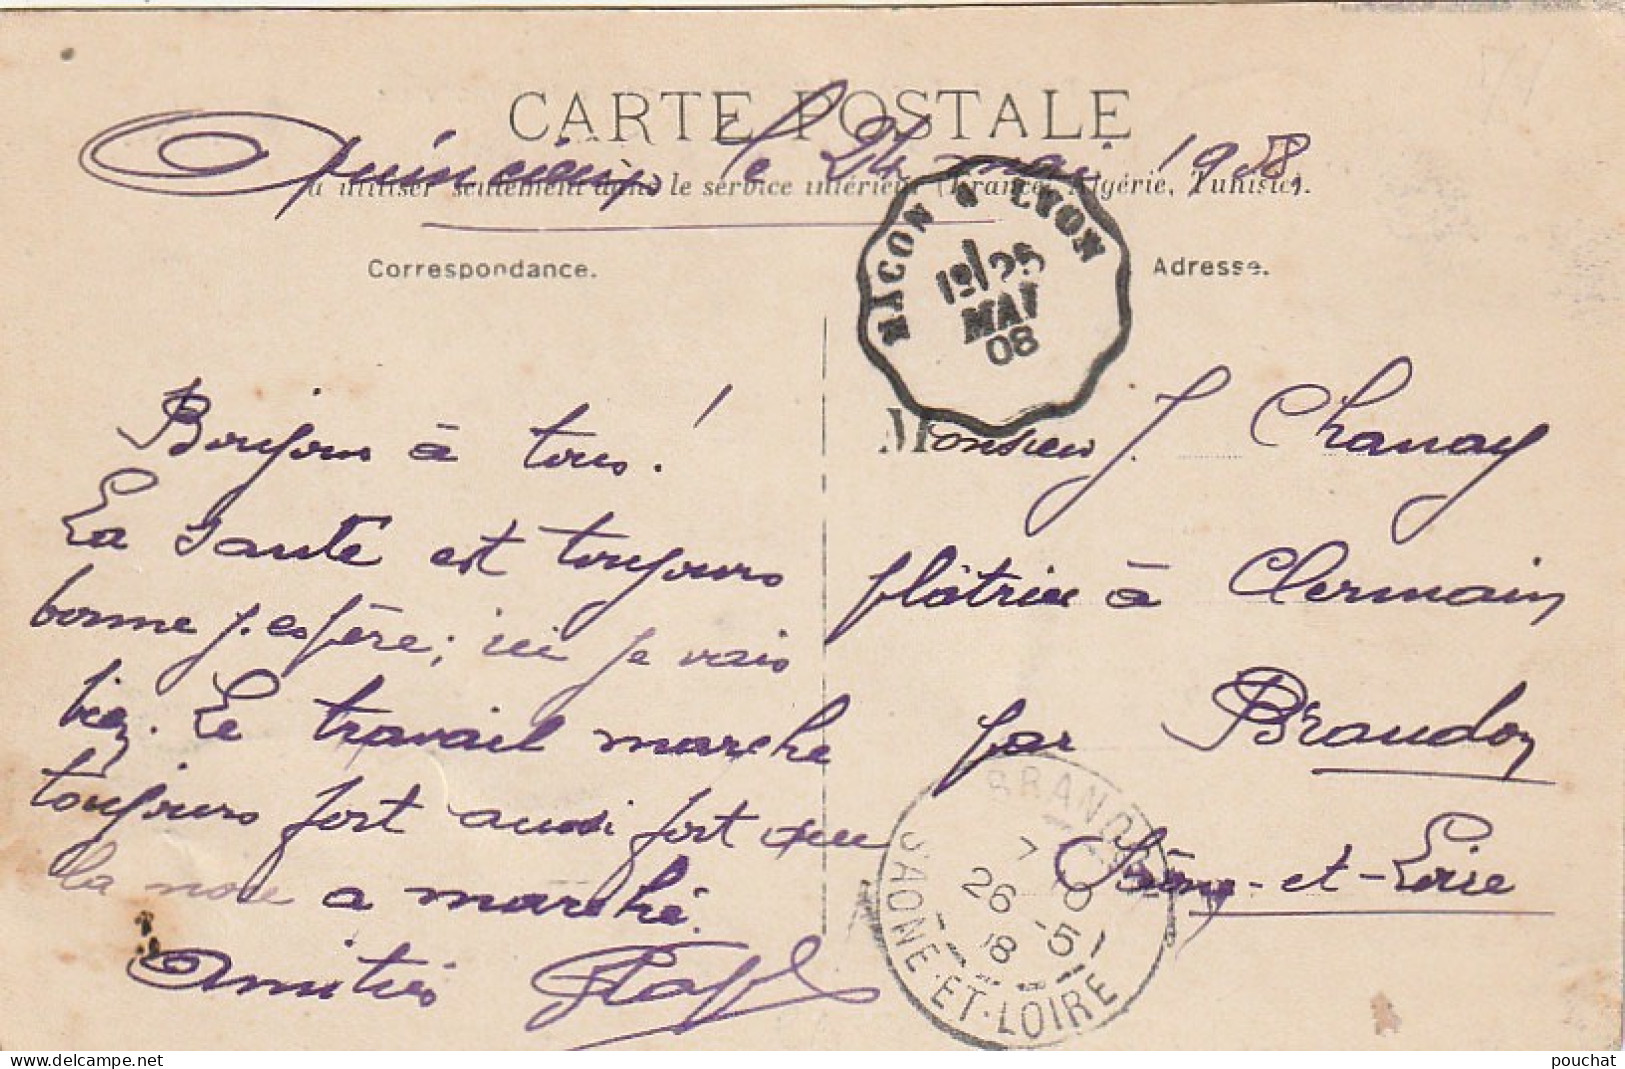 CARTE POSTALE
Quincieux le 24 mai 1908.
à utiliser seulement dans le service intérieur (France, Algérie, Tunisie).
Correspondance.
Adresse.
MACON A LYON
25
MAI
08
Bonjour à tous !
La santé est toujours
bonne j'espère; ici je vais
bien. Le travail marche
toujours fort aussi fort que
la noce a marché.
Amitiés
Monsieur J. Chanay
plâtrier à Clermain
par Brandon
Saône-et-Loire
BRANDON
7
26 -5
08
SAONE-ET-LOIRE
pouchat